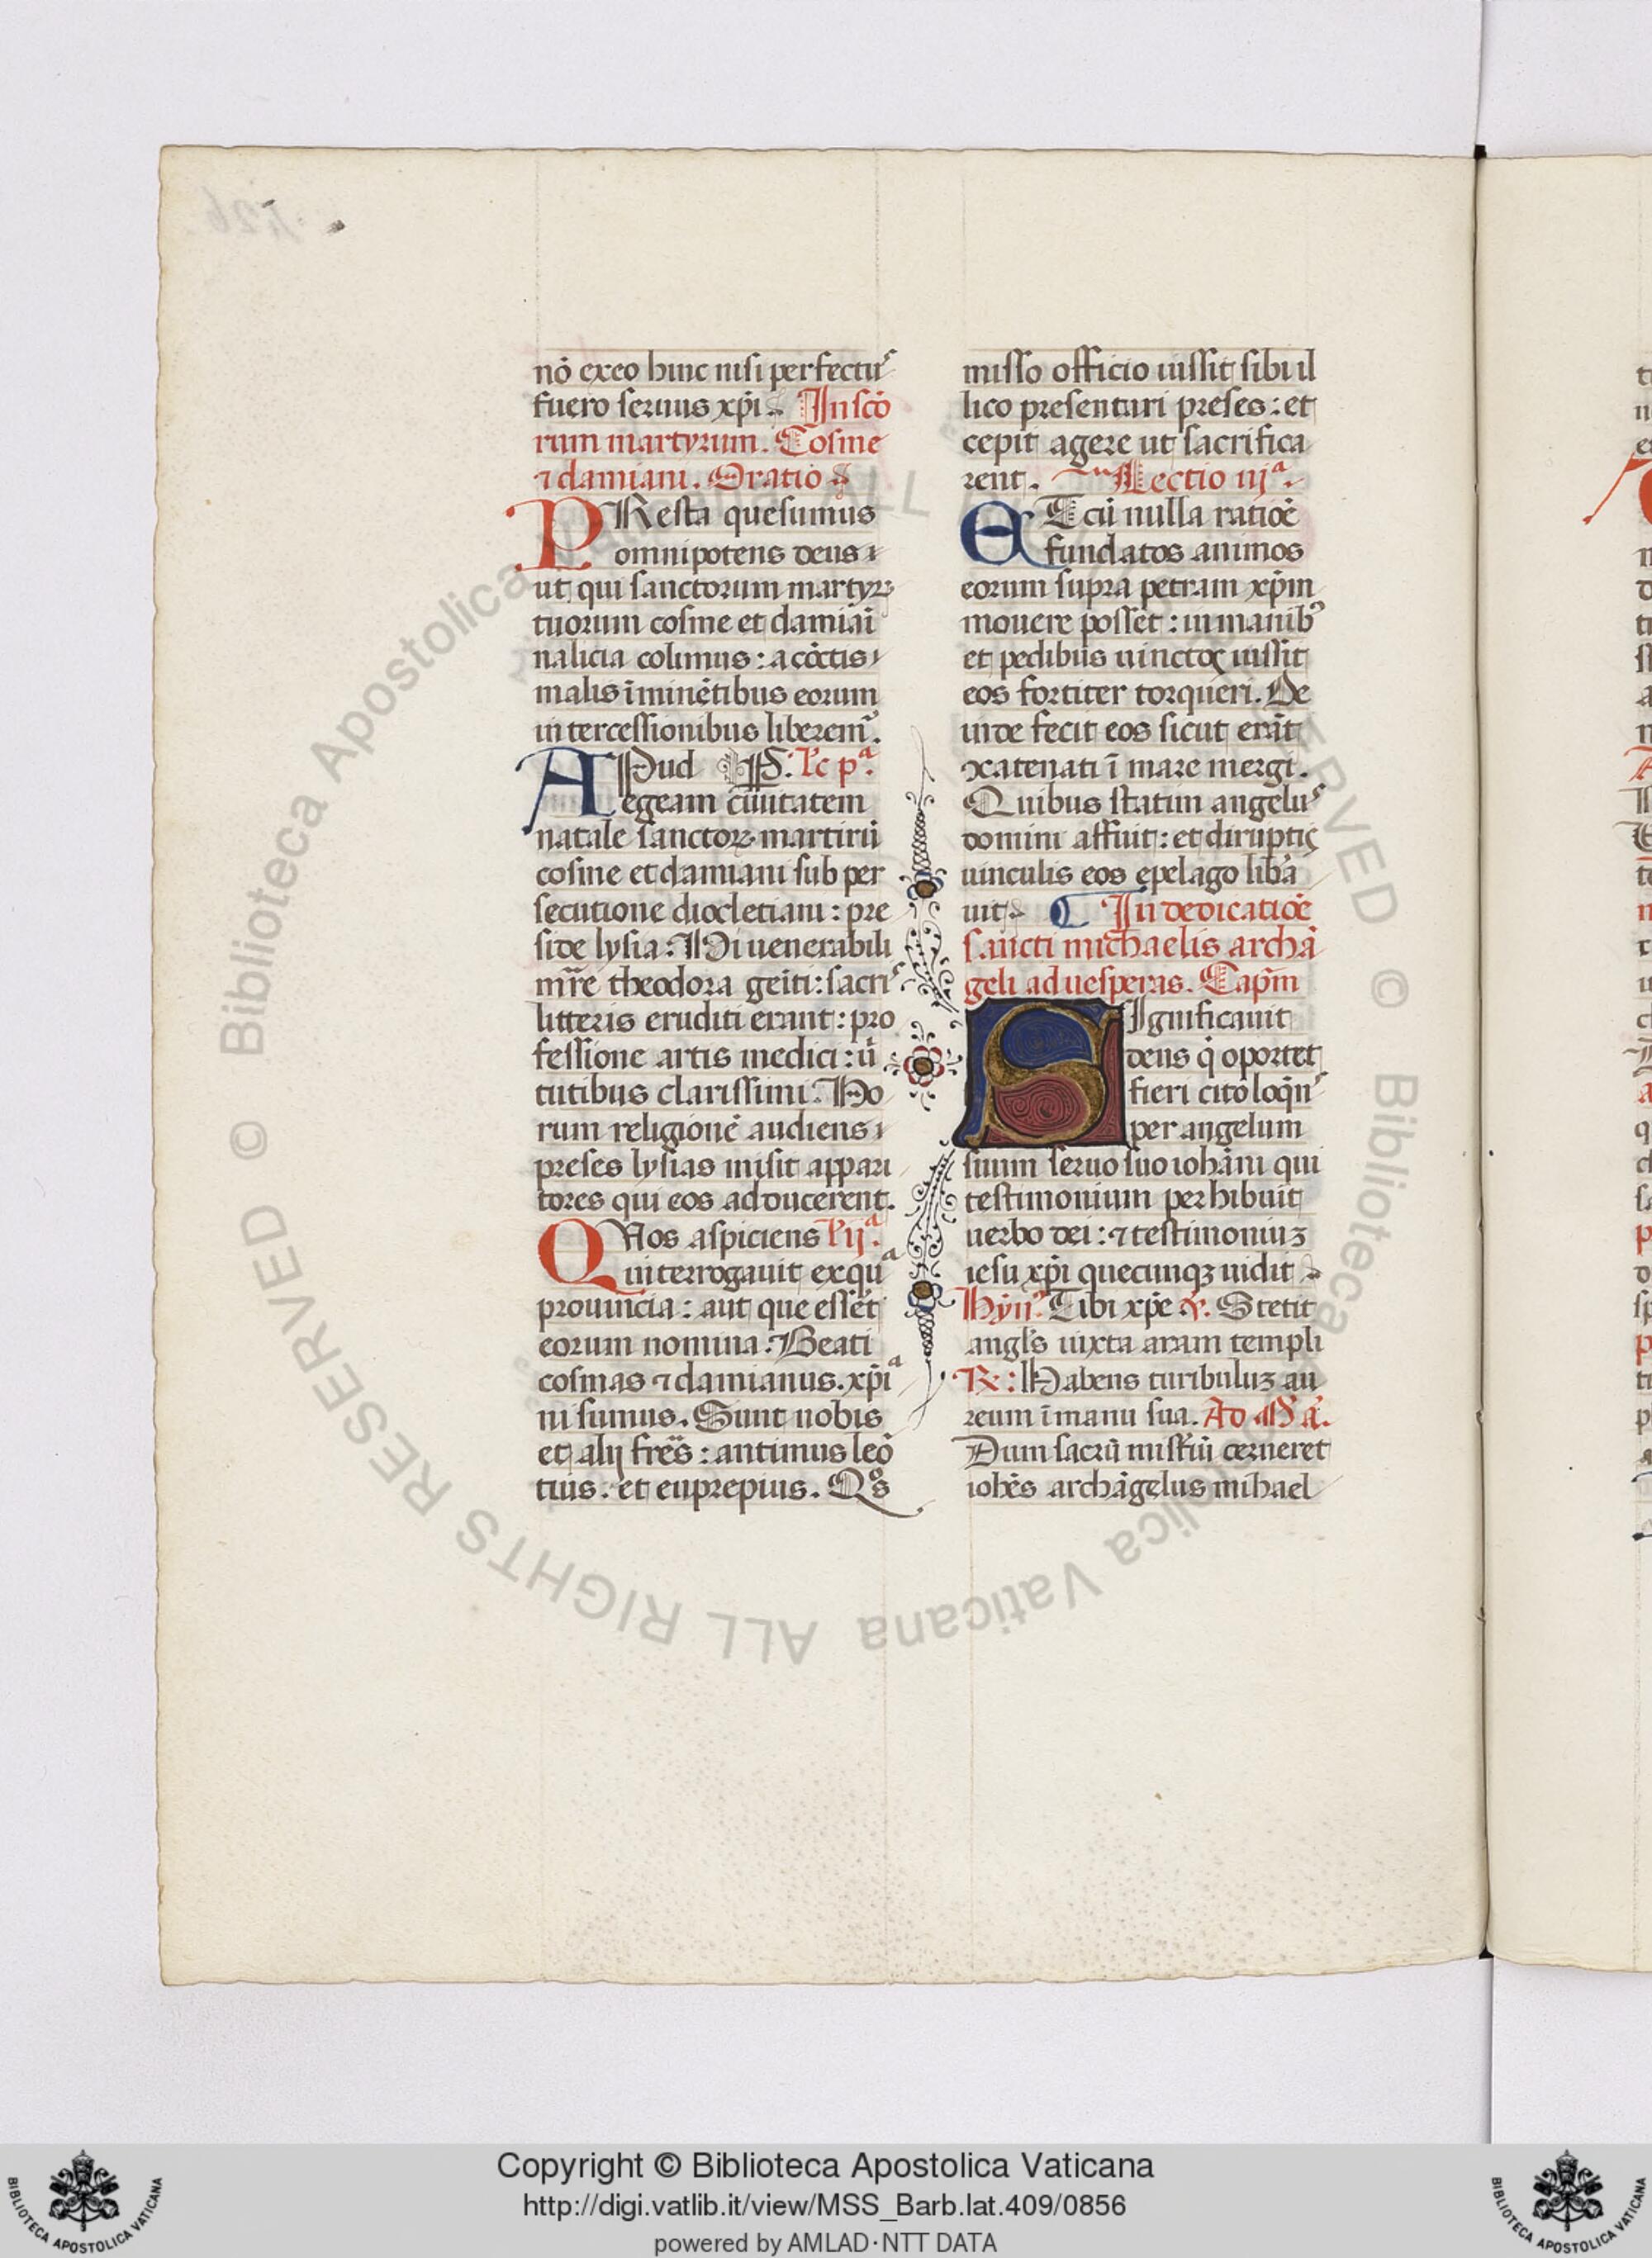 nō exeo hinc nisi perfectus
fuero seruus xp̄i. In scō
rum martyrum. Cosme
⁊ damiani. Oratio
PResta quesumus
omnipotens deus
ut qui sanctorum martyrꝝ
tuorum cosme et damiāi
nalicia colimus : a cōctis
malis īminētibus eorum
intercessionibus liberem̄.
APud Lc̄ pᵃ.
egeam ciuitatem
natale sanctorꝝ martirū
cosme et damiani sub per
secutione diocletiani : pre
side lysia. Hi uenerabili
mr̄e theodora geīti : sacris
litteris eruditi erant : pro
fessione artis medici : uī
tutibus clarissimi. Ho
rum religionē audiens
preses lysias misit appari
tores qui eos adducerent.
QUos aspiciens L̄ ijᵃ.
interrogauit ex quᵃ
prouincia : aut que essēt
eorum nomina. Beati
cosmas ⁊ damianus. xp̄iᵃ
ni sumus. Sunt nobis
et alij fr̄es : antimus leō
tius : et euprepius. Qᵒs
misso officio iussit sibi il
lico presentari preses : et
cepit agere ut sacrifica
rent. Lectio iijᵃ.
ET cū nulla ratiōe
fundatos animos
eorum supra petram xp̄m
mouere posset : in manibꝰ
et pedibus uinctos iussit
eos fortiter torqueri. De
inde fecit eos sicut erāt
ꝯcatenati ī mare mergi.
Quibus statim angelus
domini affuit : et diruptis
uinculis eos epelago libā
uit. In dedicatiōe
sancti michaelis archā
geli ad uesperas. Cap̄m
SIgnificauit
deus q̄ oportet
fieri cito loq̄ns
per angelum
suum seruo suo iohāni qui
testimonium perhibuit
uerbo dei : ⁊ testimoniuꝫ
iesu xp̄i quecunqꝫ uidit
Hyn̄. Tibi xp̄e ℣. Stetit
angl̄s iuxta aram templi
℞ : Habens turibuluꝫ au
reum ī manu sua. Ad M̄ a.
Dum sacrū mistīū cerneret
ioh̄es archāgelus mihael
Copyright © Biblioteca Apostolica Vaticana
http://digi.vatlib.it/view/MSS_Barb.lat.409/0856
powered by AMLAD·NTT DATA